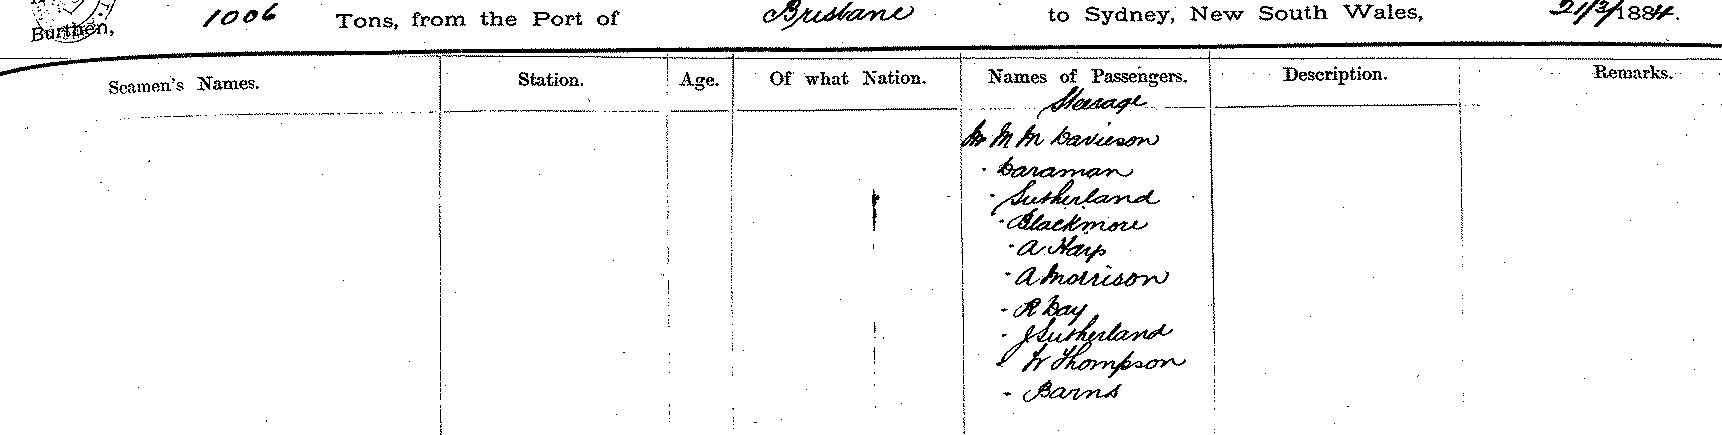 Burthen, 1006 Tons, from the Port of Brisbane to Sydney, New South Wales, 21/3/1884.
Seamen's Names. Station. Age. Of what Nation. Names of Passengers. Description. Remarks.
Steerage
Mr M M Davieson
" Daraman
" Sutherland
" Blackmore
" A Harp
" A Morrison
" R Day
" J Sutherland
" W Thompson
" Barns